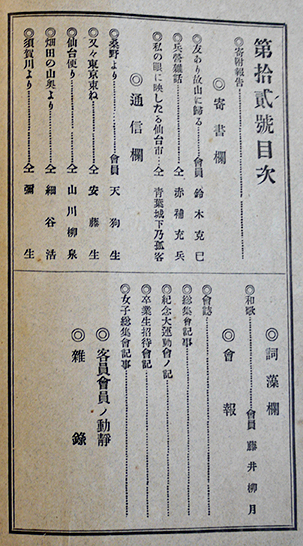 第拾貳號目次
◎寄附報告
◎寄書欄
◎友あり故山に歸る……會員 鈴木克巳
◎兵營雑話……仝 赤穗充兵
◎私の眼に映したる仙台市…仝 青葉城下乃孤客
◎通信欄
◎桑野より……會員 天狗生
◎又々東京束ね……仝 安藤生
◎仙台便り……仝 山川柳泉
◎畑田の山奥より……仝 細谷浩
◎須賀川より……仝 彌生
◎詞藻欄
◎和歌……會員 藤井柳月
◎會報
◎會誌
◎總集會記事
◎紀念大運動會ノ記
◎卒業生招待會記
◎女子總集會記事
◎客員會員ノ動靜
◎雜錄